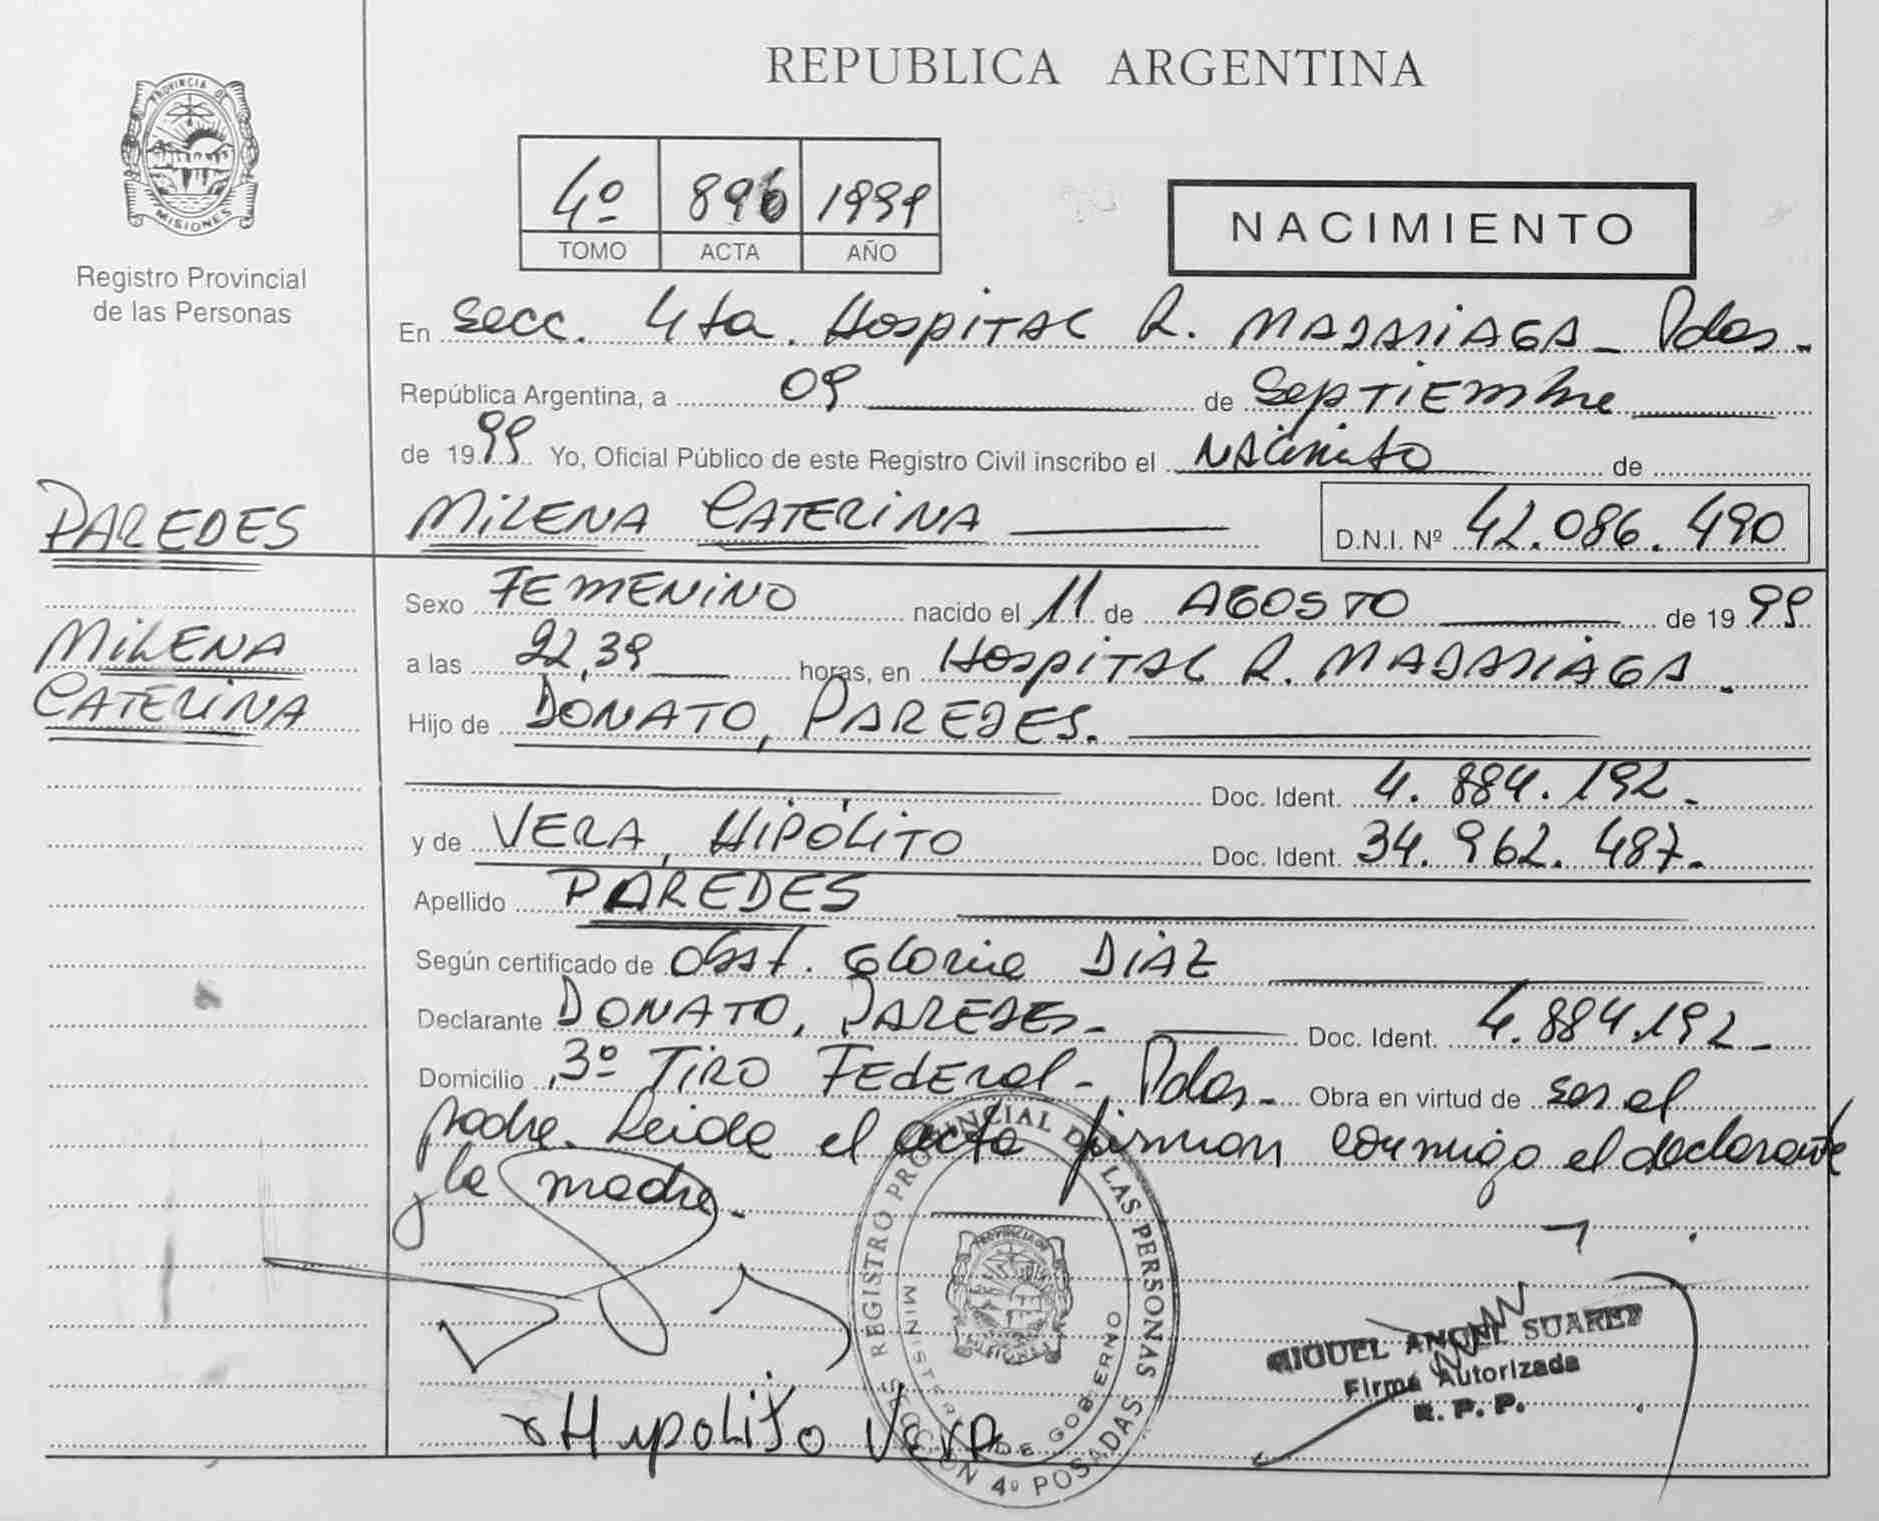 REPUBLICA ARGENTINA
PROVINCIA DE
MISIONES
Registro Provincial
de las Personas
4º 896 1999
TOMO ACTA AÑO
NACIMIENTO
En Secc. 4ta. Hospital R. MADARIAGA - Pdas.
República Argentina, a 09 de Septiembre
de 1999 Yo, Oficial Público de este Registro Civil inscribo el NACimito de
PAREDES MiLENA CATERiNA D.N.I. Nº 42.086.490
MiLENA
CATERiNA
Sexo FEMENiNO nacido el 11 de AGOSTO de 1999
a las 22,39 horas, en HospiTAL R. MADARiAGA.
Hijo de DONATO, PAREDES.
Doc. Ident. 4.884.192.
y de VERA, HiPÓLiTO Doc. Ident. 34.962.487.
Apellido PAREDES
Según certificado de Obst. Gloria DiAZ
Declarante DONATO, PAREDES. Doc. Ident. 4.884.192.
Domicilio 3º TiRO FEdERal - Pdas. Obra en virtud de ser el
padre. Leida el acta firman conmigo el declarante
y la madre.
REGISTRO PROVINCIAL DE LAS PERSONAS
MINISTERIO DE GOBIERNO
SECCION 4º POSADAS
PROVINCIA DE
MISIONES
MIGUEL ANGEL SUAREZ
Firma Autorizada
R. P. P.
Hipolito Vera